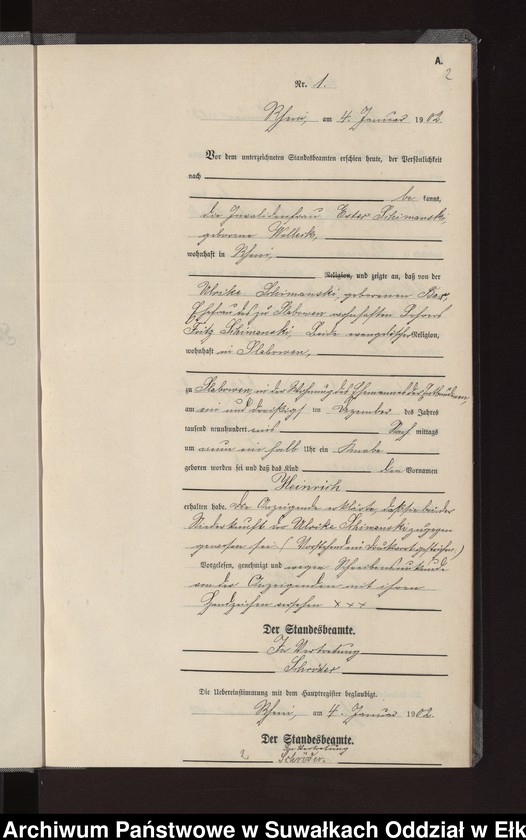 A.
2
Nr. 1.
Rhein, am 4. Januar 1902.
Vor dem unterzeichneten Standesbeamten erschien heute, der Persönlichkeit
nach
be kannt,
die Invalidenfrau Ester Schimanski,
geborene Wolleck,
wohnhaft in Rhein,
Religion, und zeigte an, daß von der
Ulrike Schimanski, geborenen
Ehefrau des zu Slabowen wohnhaften
Fritz Schimanski, Beide evangelischer Religion,
wohnhaft in Slabowen,
zu Slabowen, in der Wohnung des Ehemannes der Entbundenen,
am ein und dreißigsten Dezember des Jahres
tausend neunhundert eins Nach mittags
um neun ein halb Uhr ein Knabe
geboren worden sei und daß das Kind den Vornamen
Heinrich
erhalten habe. Die Anzeigende erklärte, daß sie bei der
Niederkunft der Ulrike Schimanski zugegen
gewesen sei (Vorstehend ein Druckwort gestrichen.)
Vorgelesen, genehmigt und wegen Schreibensunkunde
von der Anzeigenden mit ihren
Handzeichen versehen x x x
Der Standesbeamte.
In Vertretung
Schröder
Die Uebereinstimmung mit dem Hauptregister beglaubigt.
Rhein, am 4. Januar 1902.
Der Standesbeamte.
In Vertretung
2 Schröder.
Archiwum Państwowe w Suwałkach Oddział w Ełk